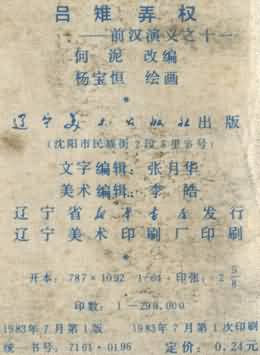 吕雉弄权
——前汉演义之十一
何 泥 改编
杨宝恒 绘画
辽宁美术出版社出版
(沈阳市民族街2段5里 号)
文字编辑:张月华
美术编辑:李 皓
辽宁省新华书店发行
辽宁美术印刷厂印刷
开本:787×1092 1/64·印张:2 5/8
印数:1—298,000
1983年7月第1版 1983年7月第1次印刷
统一书号:7161·0196 定价:0.24元